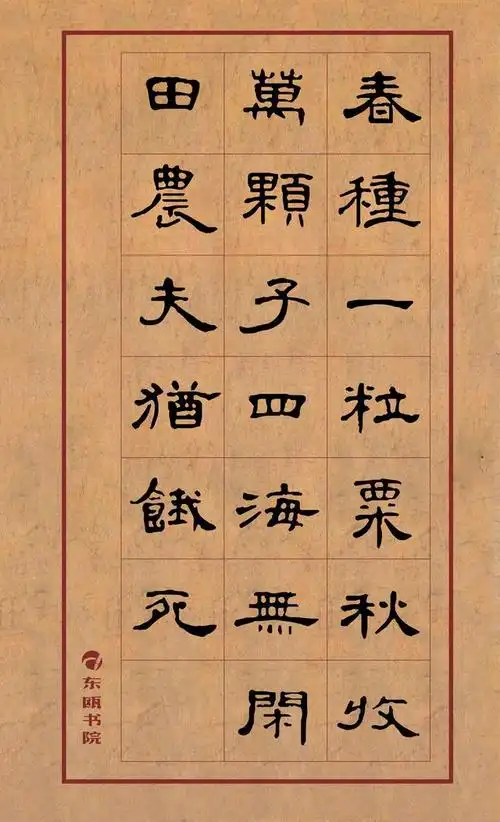 春種一粒粟秋收
萬顆子四海無閑
田農夫猶餓死
东瓯书院